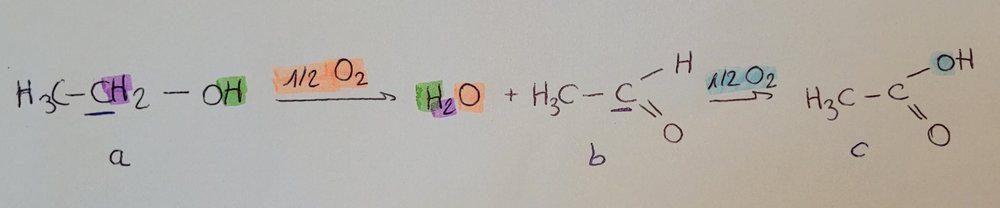 H₃C-CH₂-OH 1/2 O₂ → H₂O + H₃C-C H O 1/2 O₂ → H₃C-C OH O
a b c